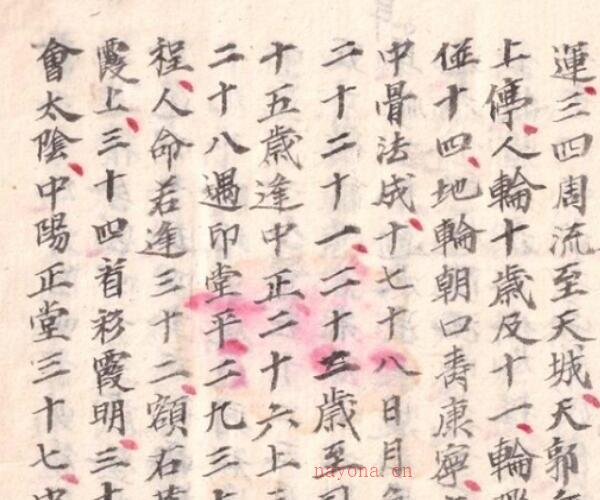 運三四周流至天城天郭
上停人輪十歲及十一輪
並十四地輪朝口壽康寧
中骨法成十七十八日月
二十二十一二十三歲至
十五歲逢中正二十六上
二十八遇印堂平二九三
程人命若逢三十二額右
霞上三十四首彩霞明三十
會太陰中陽正堂三十七中
nayona.cn